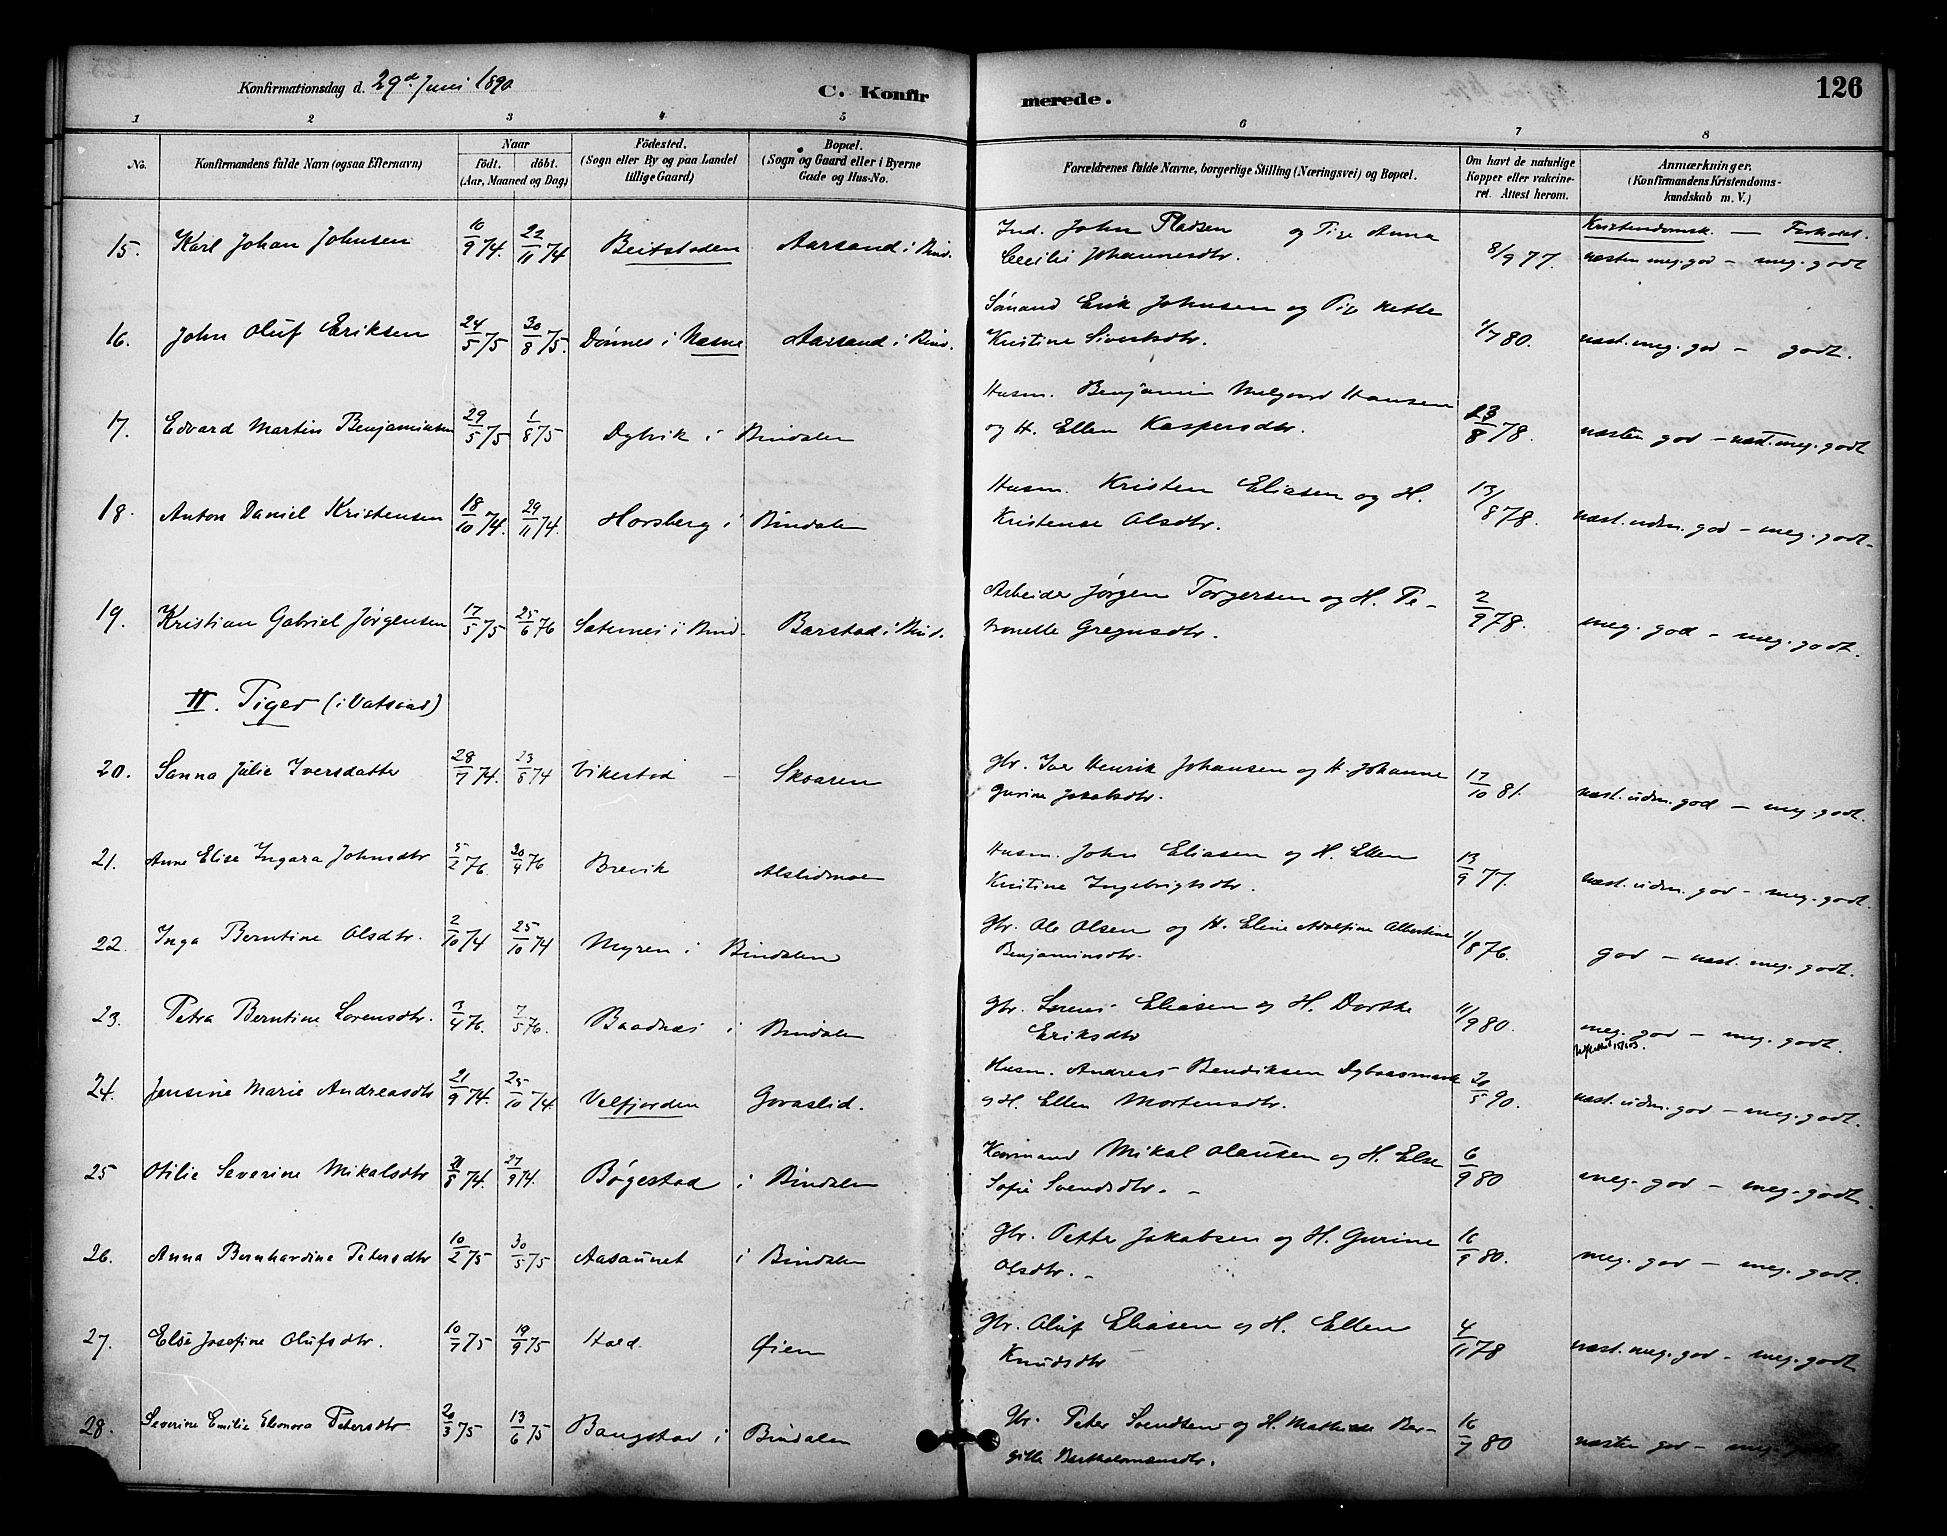 Konfirmationsdag d. 29d Juni 1890
C. Konfirmerede.
126
1 2 3 4 5 6 7 8
No.
Konfirmandens fulde Navn (ogsaa Efternavn)
Naar
födt. döbt.
(Aar, Maaned og Dag)
Födested.
(Sogn eller By og paa Landet
tillige Gaard)
Bopæl.
(Sogn og Gaard eller i Byerne
Gade og Hus-No.
Forældrenes fulde Navne, borgerlige Stilling (Næringsvei) og Bopæl.
Om havt de naturlige
Kopper eller vakcine-
ret. Attest herom.
Anmærkninger.
(Konfirmandens Kristendoms-
kundskab m. V.)
Kristendomsk. — Forhold.
15. Karl Johan Johnsen 10/9 74. 22/11 74 Beitstaden Aarsand i Bind. Ind. John Pladsen og Pige Anna
Cecilie Johannesdtr. 8/9 77. næsten meg. god – meg. godt
16. John Oluf Eriksen 24/5 75 30/8 75. Dønnes i Næsne Aarsand i Bind. Sømand Erik Johnsen og Pige Mette
Kristine Sivertsdtr. 1/7 80. næst. meg. god – godt.
17. Edvard Martin Benjaminsen 29/5 75 1/8 75 Dybvik i Bindalen Husm. Benjamin Melgaard Hansen
og H. Ellen Kaspersdtr. 23/8 78. næsten god – næst. meg. godt
18. Anton Daniel Kristensen 18/10 74. 29/11 74. Horsberg i Bindalen Husm. Kristen Eliasen og H.
Kristense Olsdtr. 13/8 78. næst. udm. god – meg. godt.
19. Kristian Gabriel Jørgensen 17/5 75 25/6 76 Saternes i Bind. Barstad i Bind. Arbeider Jørgen Torgersen og H. Pe-
tronelle Gregusdtr. 2/9 78. meg. god – meg. godt.
II. Piger (i Vatsaas)
20. Sanna Julie Iversdatter 28/7 74. 23/8 74 Vikestad – Skaaren Gbr. Iver Henrik Johansen og H. Johanne
Gurine Jakobsdtr. 17/10 81. næst. udm. god – meg. godt.
21. Anne Elise Ingara Johnsdtr 5/2 76. 30/4 76 Brevik Alslidmoe Husm. John Eliasen og H. Ellen
Kristine Ingebrigtsdtr. 13/9 77. næst. udm. god – meg. godt.
22. Inga Berntine Olsdtr. 2/10 74 25/10 74 Myren i Bindalen Gbr. Ole Olsen og H. Eline Adolfine Albertine
Benjaminsdtr. 1/8 76. god – næst. meg. godt.
23. Petra Berntine Sørensdtr. 3/4 76. 7/5 76. Baadnæs i Bindalen Gbr. Sørens Eliasen og H. Dorthe
Eriksdtr 11/9 80. meg. god – meg. godt.
24. Jensine Marie Andreasdtr 21/9 74. 25/10 74. Velfjorden Govaslid. Husm. Andreas Bendiksen Dybvasmark
og H. Ellen Mortensdtr. 20/5 90. næst. udm. god – meg. godt.
25 Otilie Severine Mikalsdtr 31/8 74. 27/9 74. Bøgestad i Bindalen Kaarmand Mikal Olausen og H. Else
Sofie Svendsdtr. – 6/9 80 meg. god – meg. godt.
26. Anna Bernhardine Petersdtr 10/2 75 30/5 75 Aasaunet i Bindalen Gbr. Petter Jakobsen og H. Gurine
Olsdtr. – 16/9 80. meg. god – meg. godt.
27. Else Josefine Olufsdtr. 10/7 75 19/9 75 Hald Øien Gbr. Oluf Eliasen og H. Ellen
Knudsdtr 4/11 78 næst. meg. god – meg. godt
28. Severine Emilie Eleonora Petersdtr 20/3 75 13/6 75 Bangstad i Bindalen Gbr. Peter Svendsen og H. Mathilde Ber-
gitte Bartholomæusdtr. 16/7 80 næsten god – meg. godt